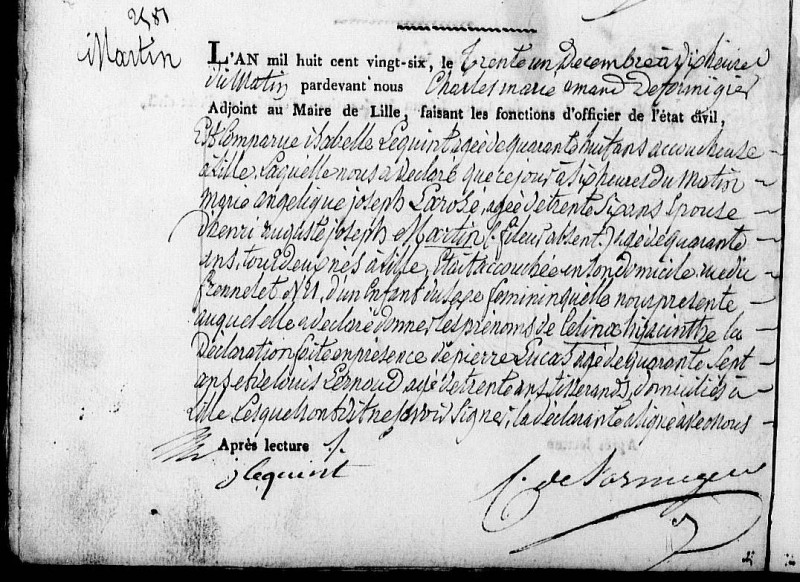 2481
Martin
L'AN mil huit cent vingt-six, le Trente un Decembre à dix heures
du Matin pardevant nous Charles marie amand Deformigier
Adjoint au Maire de Lille, faisant les fonctions d'officier de l'état civil,
Est Comparue isabelle Lequint agée de quarante huit ans accoucheuse
à Lille, Laquelle nous a declaré que ce jour à six heures du Matin
marie angelique joseph Larose, agée de trente six ans Epouse
d'henri auguste joseph Martin (fileur absent) agé de quarante
ans, tous deux nés à Lille, Etait accouchée en son domicile rue du
fronnelet N° 21, d'un Enfant du sexe feminin qu'elle nous presente
auquel elle a declaré donner les prénoms de Celina hyacinthe la
Déclaration faite en présence de pierre Lucas agé de quarante Sept
ans et de louis Lernoud agé de trente ans tisserands, domiciliés à
Lille Lesquels ont dit ne savoir Signer, la declarante a signé avec nous
Après lecture /.
j lequint
C. de formigier